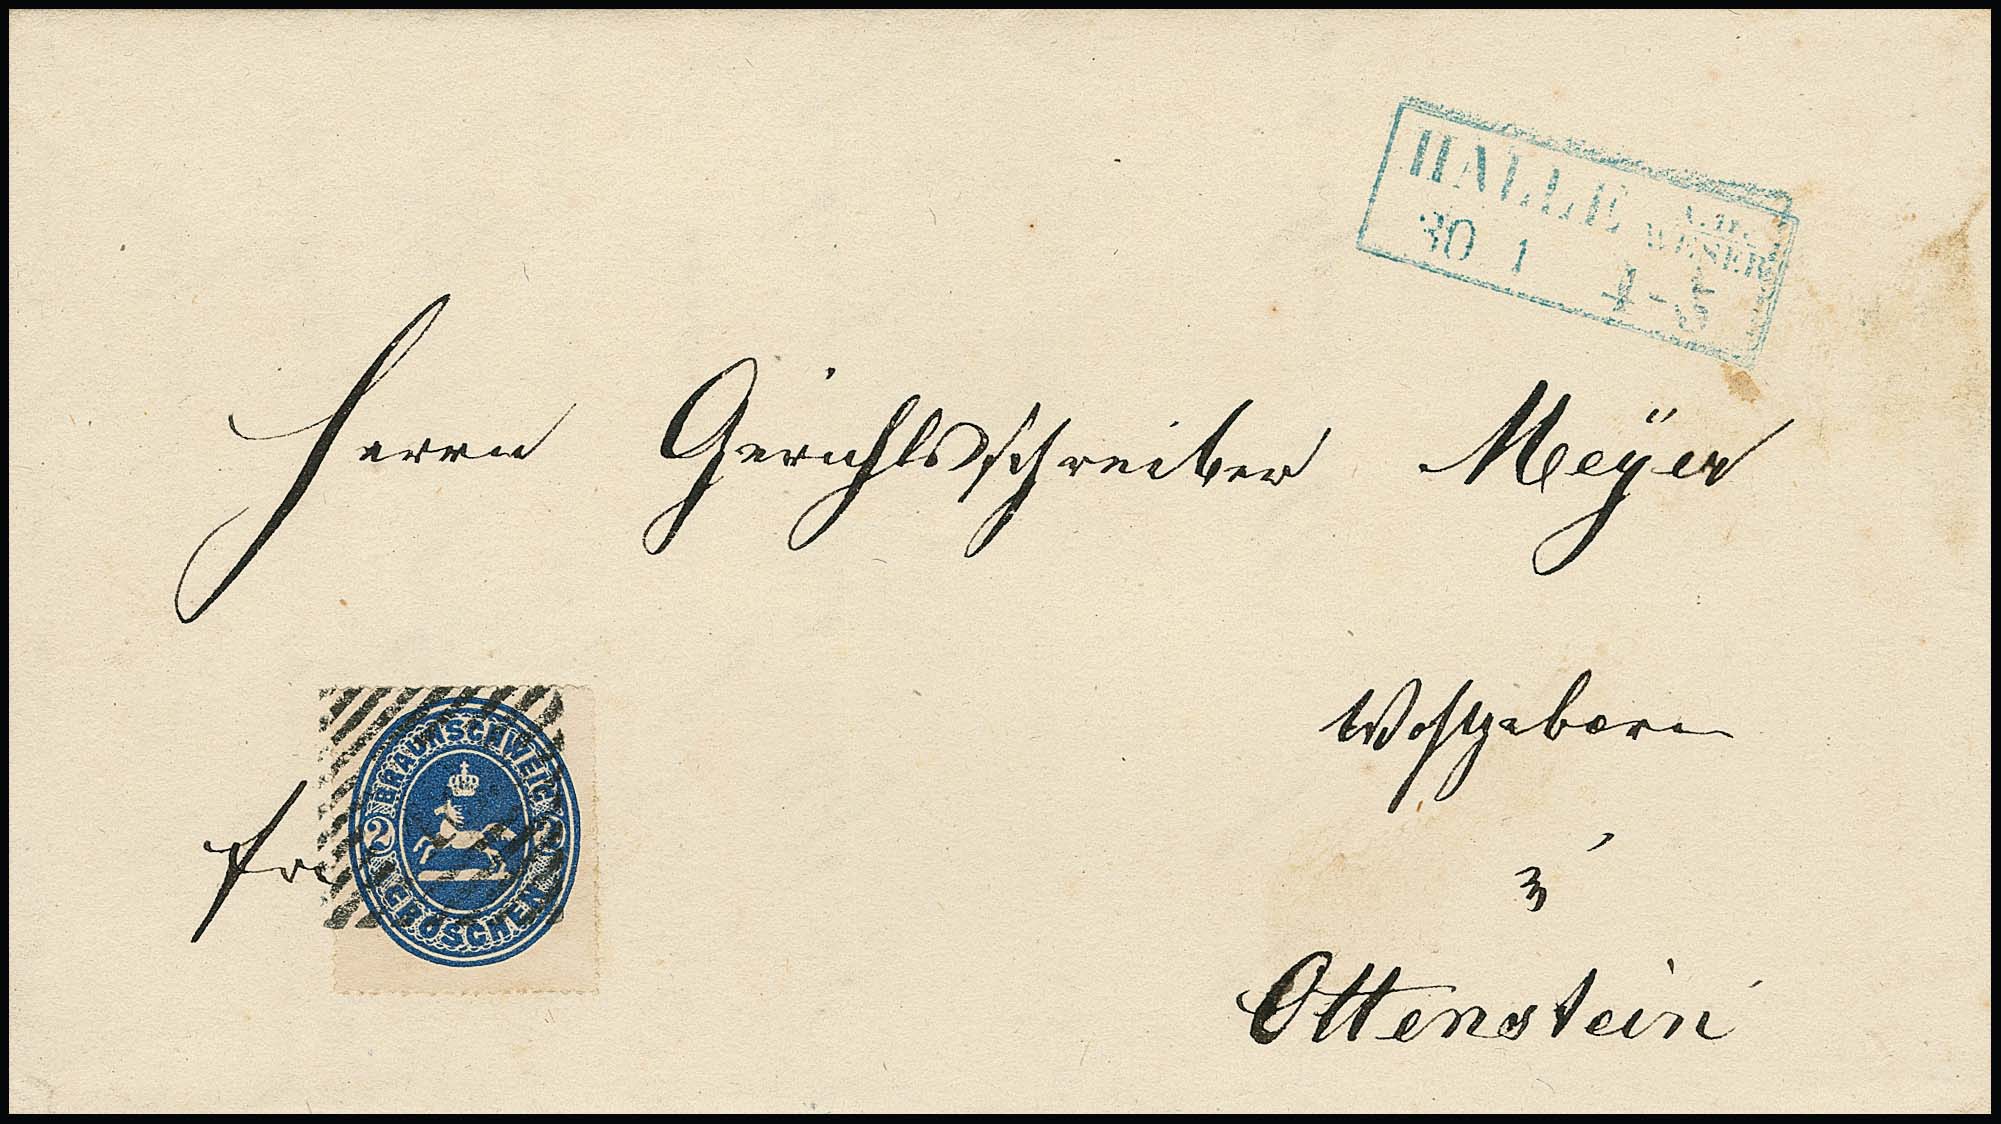 HALLE A. D. WESER
30 1 4-5
Herrn Gerichtsschreiber Meÿer
Wohlgeboren
fr
BRAUNSCHWEIG
2 2
GROSCHEN
z'
Ottenstein